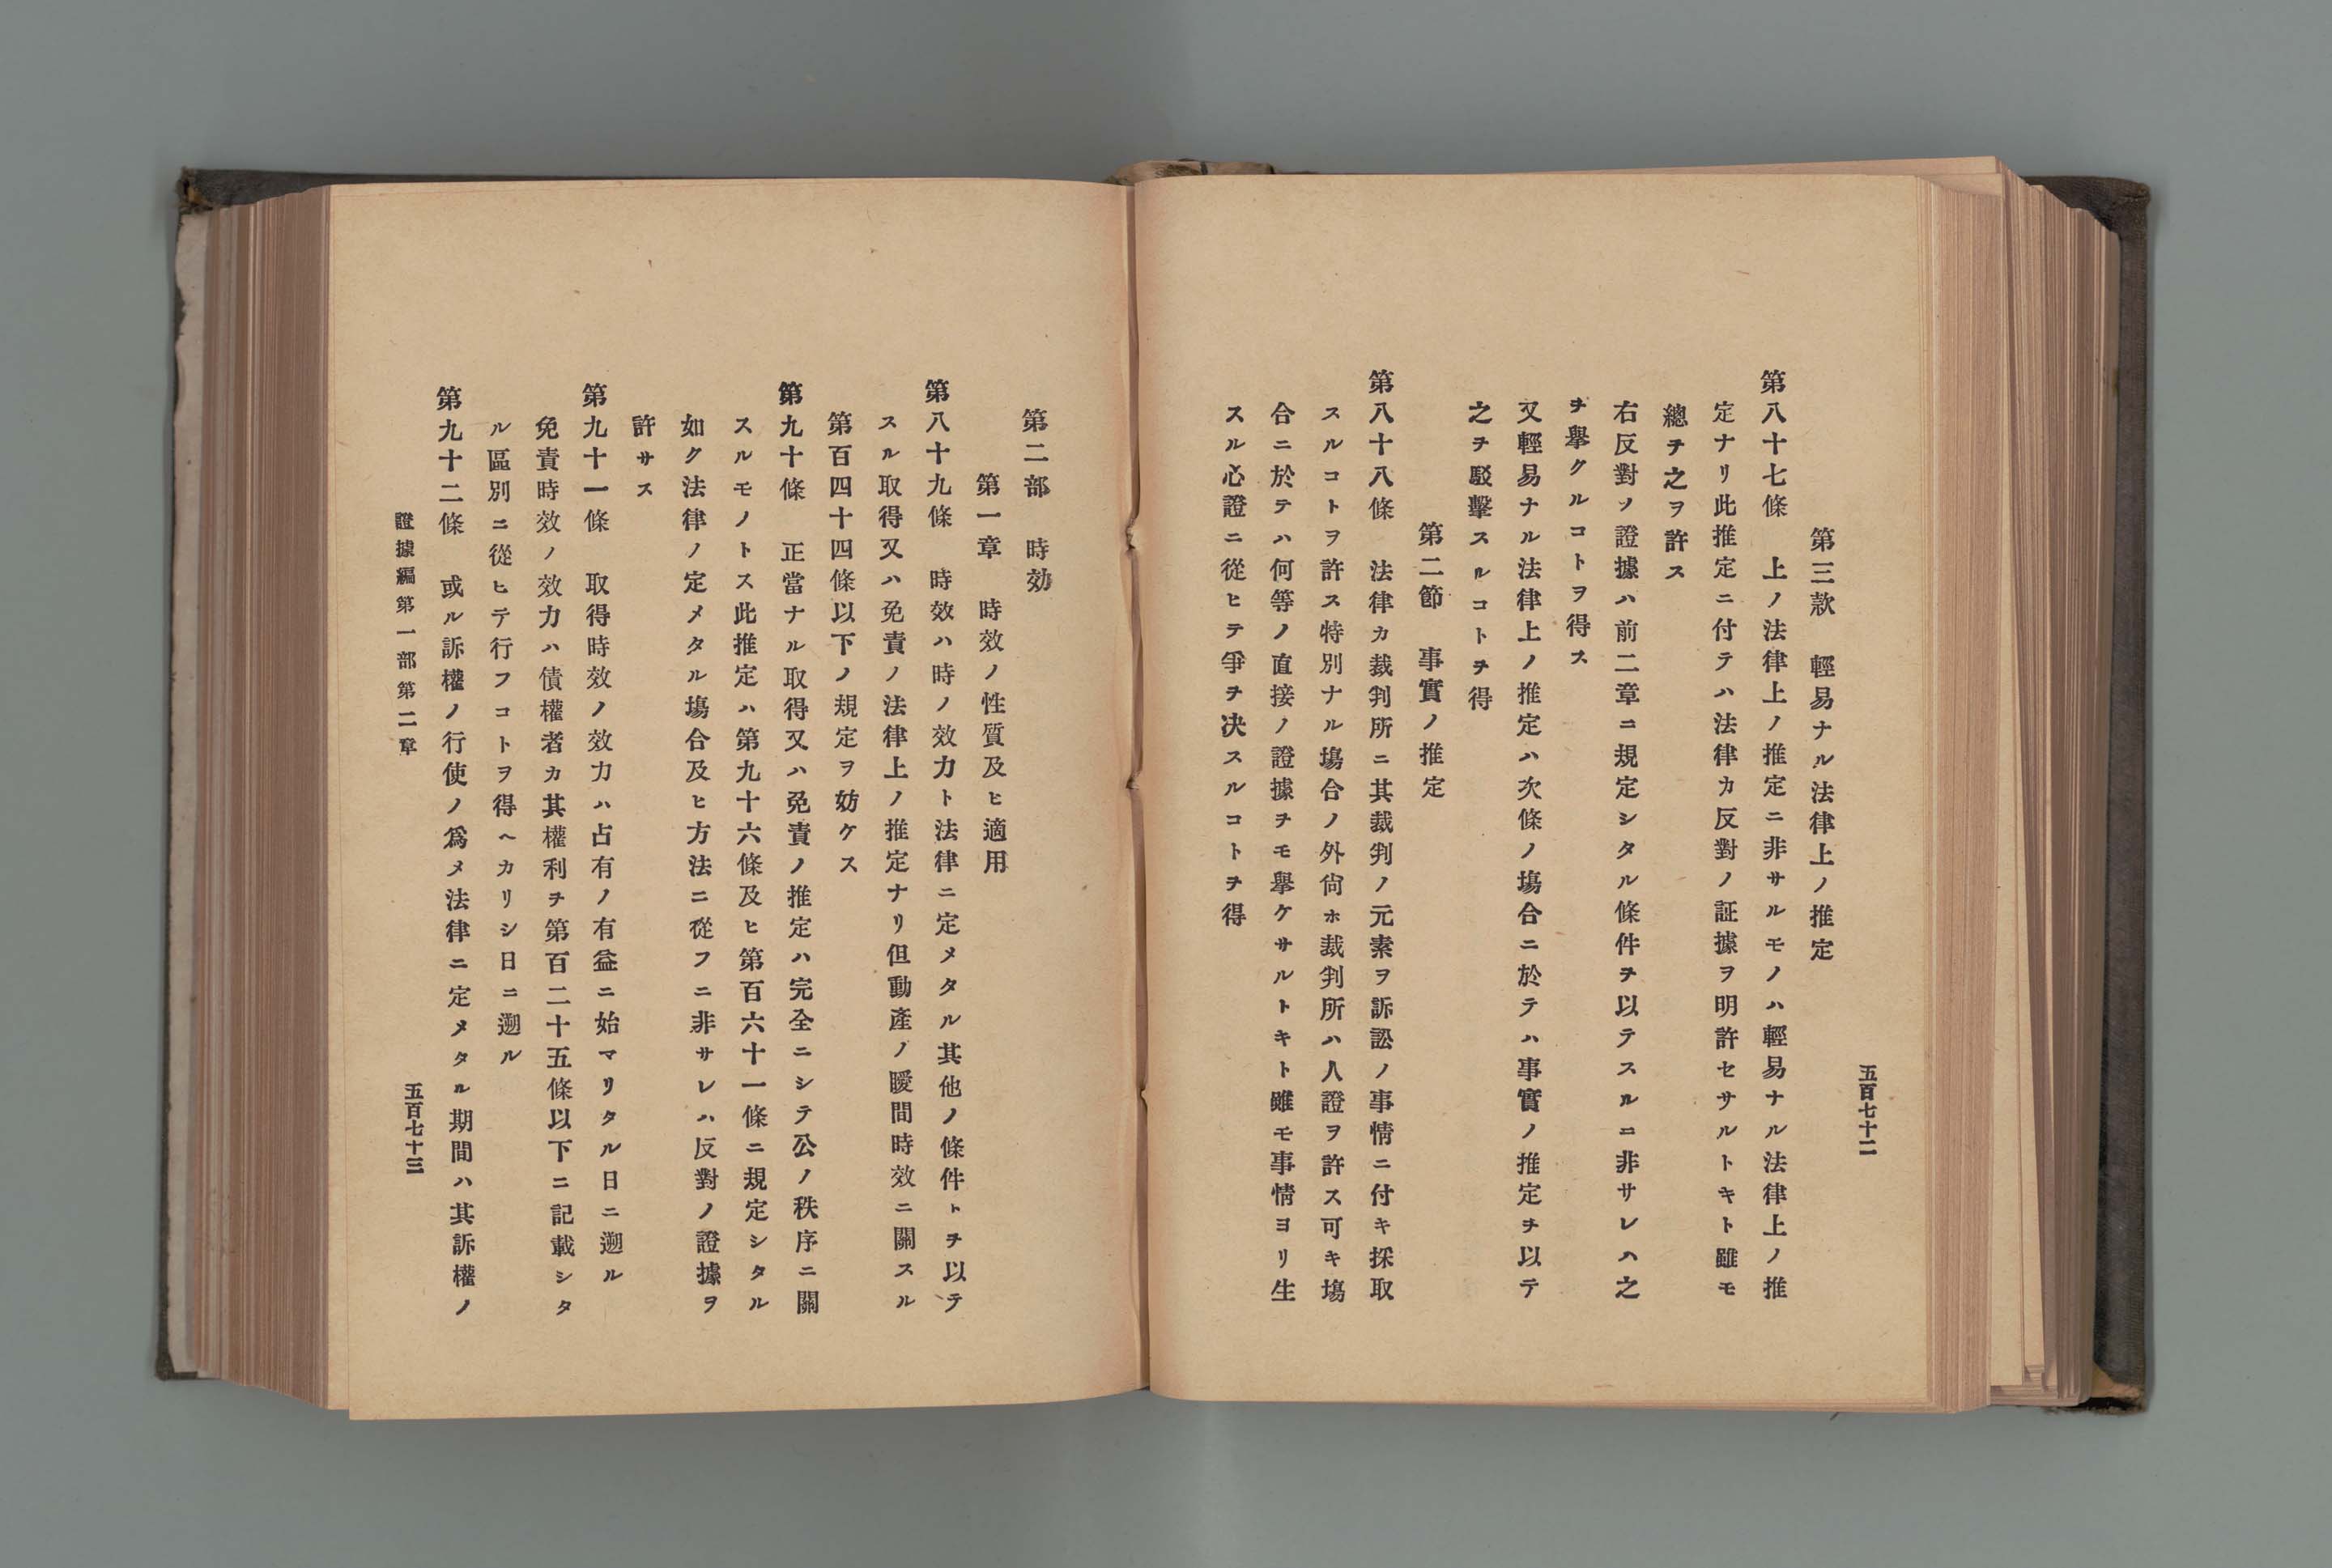 五百七十二
第三款　輕易ナル法律上ノ推定
第八十七條　上ノ法律上ノ推定ニ非サルモノハ輕易ナル法律上ノ推
定ナリ此推定ニ付テハ法律カ反對ノ証據ヲ明許セサルトキト雖モ
總テ之ヲ許ス
右反對ノ證據ハ前二章ニ規定シタル條件ヲ以テスルニ非サレハ之
ヲ擧クルコトヲ得ス
又輕易ナル法律上ノ推定ハ次條ノ塲合ニ於テハ事實ノ推定ヲ以テ
之ヲ駁擊スルコトヲ得
第二節　事實ノ推定
第八十八條　法律カ裁判所ニ其裁判ノ元素ヲ訴訟ノ事情ニ付キ採取
スルコトヲ許ス特別ナル塲合ノ外尙ホ裁判所ハ人證ヲ許ス可キ塲
合ニ於テハ何等ノ直接ノ證據ヲモ擧ケサルトキト雖モ事情ヨリ生
スル心證ニ從ヒテ爭ヲ决スルコトヲ得
第二部　時効
第一章　時效ノ性質及ヒ適用
第八十九條　時效ハ時ノ效力ト法律ニ定メタル其他ノ條件トヲ以テ
スル取得又ハ免責ノ法律上ノ推定ナリ但動產ノ瞹間時效ニ關スル
第百四十四條以下ノ規定ヲ妨ケス
第九十條　正當ナル取得又ハ免責ノ推定ハ完全ニシテ公ノ秩序ニ關
スルモノトス此推定ハ第九十六條及ヒ第百六十一條ニ規定シタル
如ク法律ノ定メタル塲合及ヒ方法ニ從フニ非サレハ反對ノ證據ヲ
許サス
第九十一條　取得時效ノ效力ハ占有ノ有益ニ始マリタル日ニ遡ル
免責時效ノ效力ハ債權者カ其權利ヲ第百二十五條以下ニ記載シタ
ル區別ニ從ヒテ行フコトヲ得ヘカリシ日ニ遡ル
第九十二條　或ル訴權ノ行使ノ爲メ法律ニ定メタル期間ハ其訴權ノ
證據編第一部第二章
五百七十三